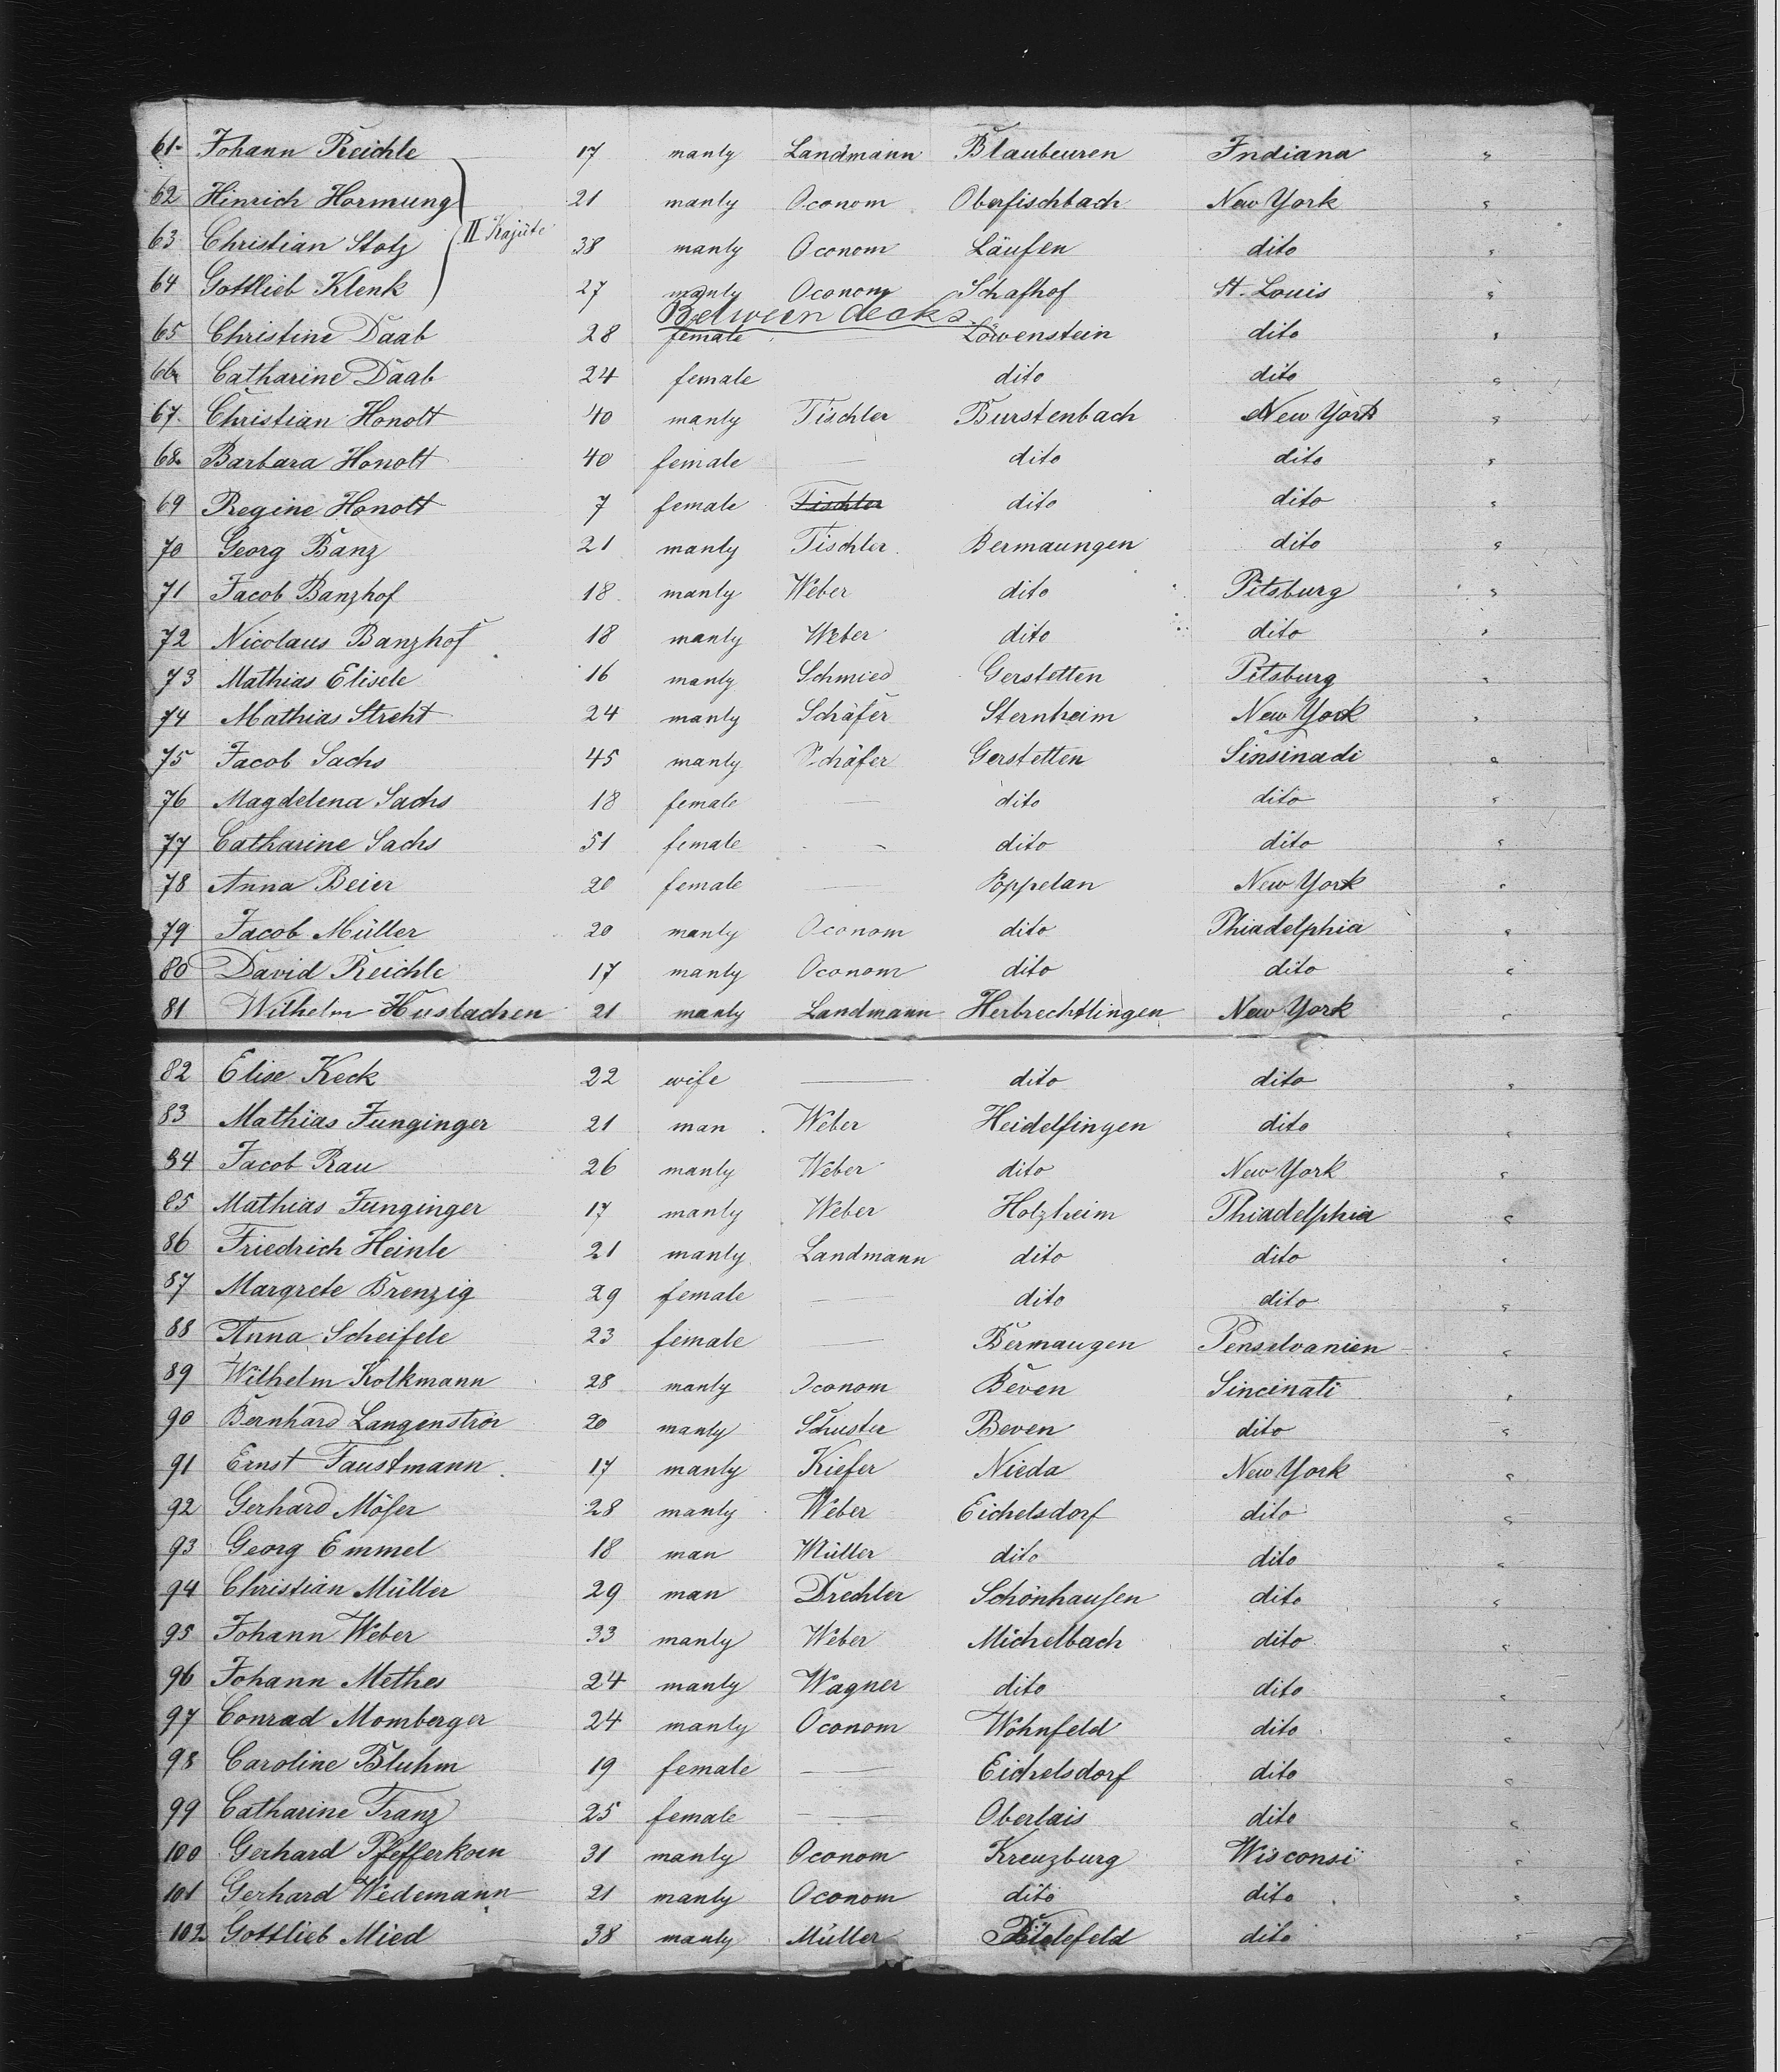 61. Johann Reichle 17 manly Landmann Blaubeuren Indiana "
62 Hinrich Hormung 21 manly Oconom Oberfischbach New York "
II Kajüte
63 Christian Stotz 38 manly Oconom Läufen dito "
64 Gottlieb Klenk 27 manly Oconom Schafhof St. Louis "
Between decks
65 Christine Daab 28 female Löwenstein dito "
66 Catharine Daab 24 female dito dito "
67. Christian Honolt 40 manly Tischler Burstenbach New York "
68. Barbara Honolt 40 female — dito dito "
69 Regine Honolt 7 female Tischler dito dito "
70 Georg Banz 21 manly Tischler Bermaungen dito "
71 Jacob Banzhof 18 manly Weber dito Pitsburg "
72 Nicolaus Banzhof 18 manly Weber dito dito "
73 Mathias Elisele 16 manly Schmied Gerstetten Pitsburg "
74 Mathias Streht 24 manly Schäfer Sternheim New York "
75 Jacob Sachs 45 manly Schäfer Gerstetten Sinsinadi "
76 Magdelena Sachs 18 female — dito dito "
77 Catharine Sachs 51 female - dito dito "
78 Anna Beier 20 female — Poppelan New York "
79 Jacob Müller 20 manly Oconom dito Phiadelphia "
80 David Reichle 17 manly Oconom dito dito "
81 Wilhelm Huslachen 21 manly Landmann Herbrechtlingen New York "
82 Elise Keck 22 wife — dito dito "
83 Mathias Junginger 21 man Weber Heidelfingen dito "
84 Jacob Rau 26 manly Weber dito New York "
85 Mathias Junginger 17 manly Weber Holzheim Phiadelphia "
86 Friedrich Heinle 21 manly Landmann dito dito "
87 Margrete Brenzig 29 female — dito dito "
88 Anna Scheifele 23 female — Bermaugen Penselvanien "
89 Wilhelm Kolkmann 28 manly Oconom Beven Sincinati "
90 Bernhard Langenströr 20 manly Schuster Beven dito "
91 Ernst Faustmann 17 manly Kiefer Nieda New York "
92 Gerhard Möser 28 manly Weber Eichelsdorf dito "
93 Georg Emmel 18 man Müller dito dito "
94 Christian Müller 29 man Drechler Schönhausen dito "
95 Johann Weber 33 manly Weber Michelbach dito "
96 Johann Methes 24 manly Wagner dito dito "
97 Conrad Momberger 24 manly Oconom Wohnfeld dito "
98 Caroline Bluhm 19 female — Eichelsdorf dito "
99 Catharine Franz 25 female — Oberlais dito "
100 Gerhard Pfefferkorn 31 manly Oconom Kreuzburg Wisconsi "
101 Gerhard Wedemann 21 manly Oconom dito dito "
102 Gottlieb Mied 38 manly Müller dito "